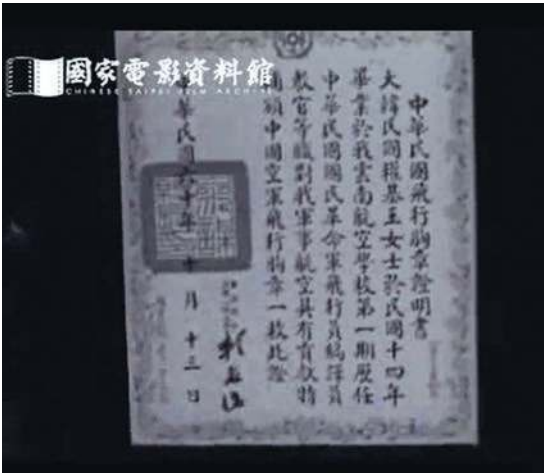 國家電影資料館
CHINESE TAIPEI FILM ARCHIVE
中華民國飛行胸章證明書
大韓民國權基玉女士於民國十四年
畢業於我雲南航空學校第一期歷任
中華民國國民革命軍飛行員編譯員
教官等職對我軍事航空具有貢獻特
頒中國空軍飛行胸章一枚此證
賴名湯
華民國六十年十月十三日